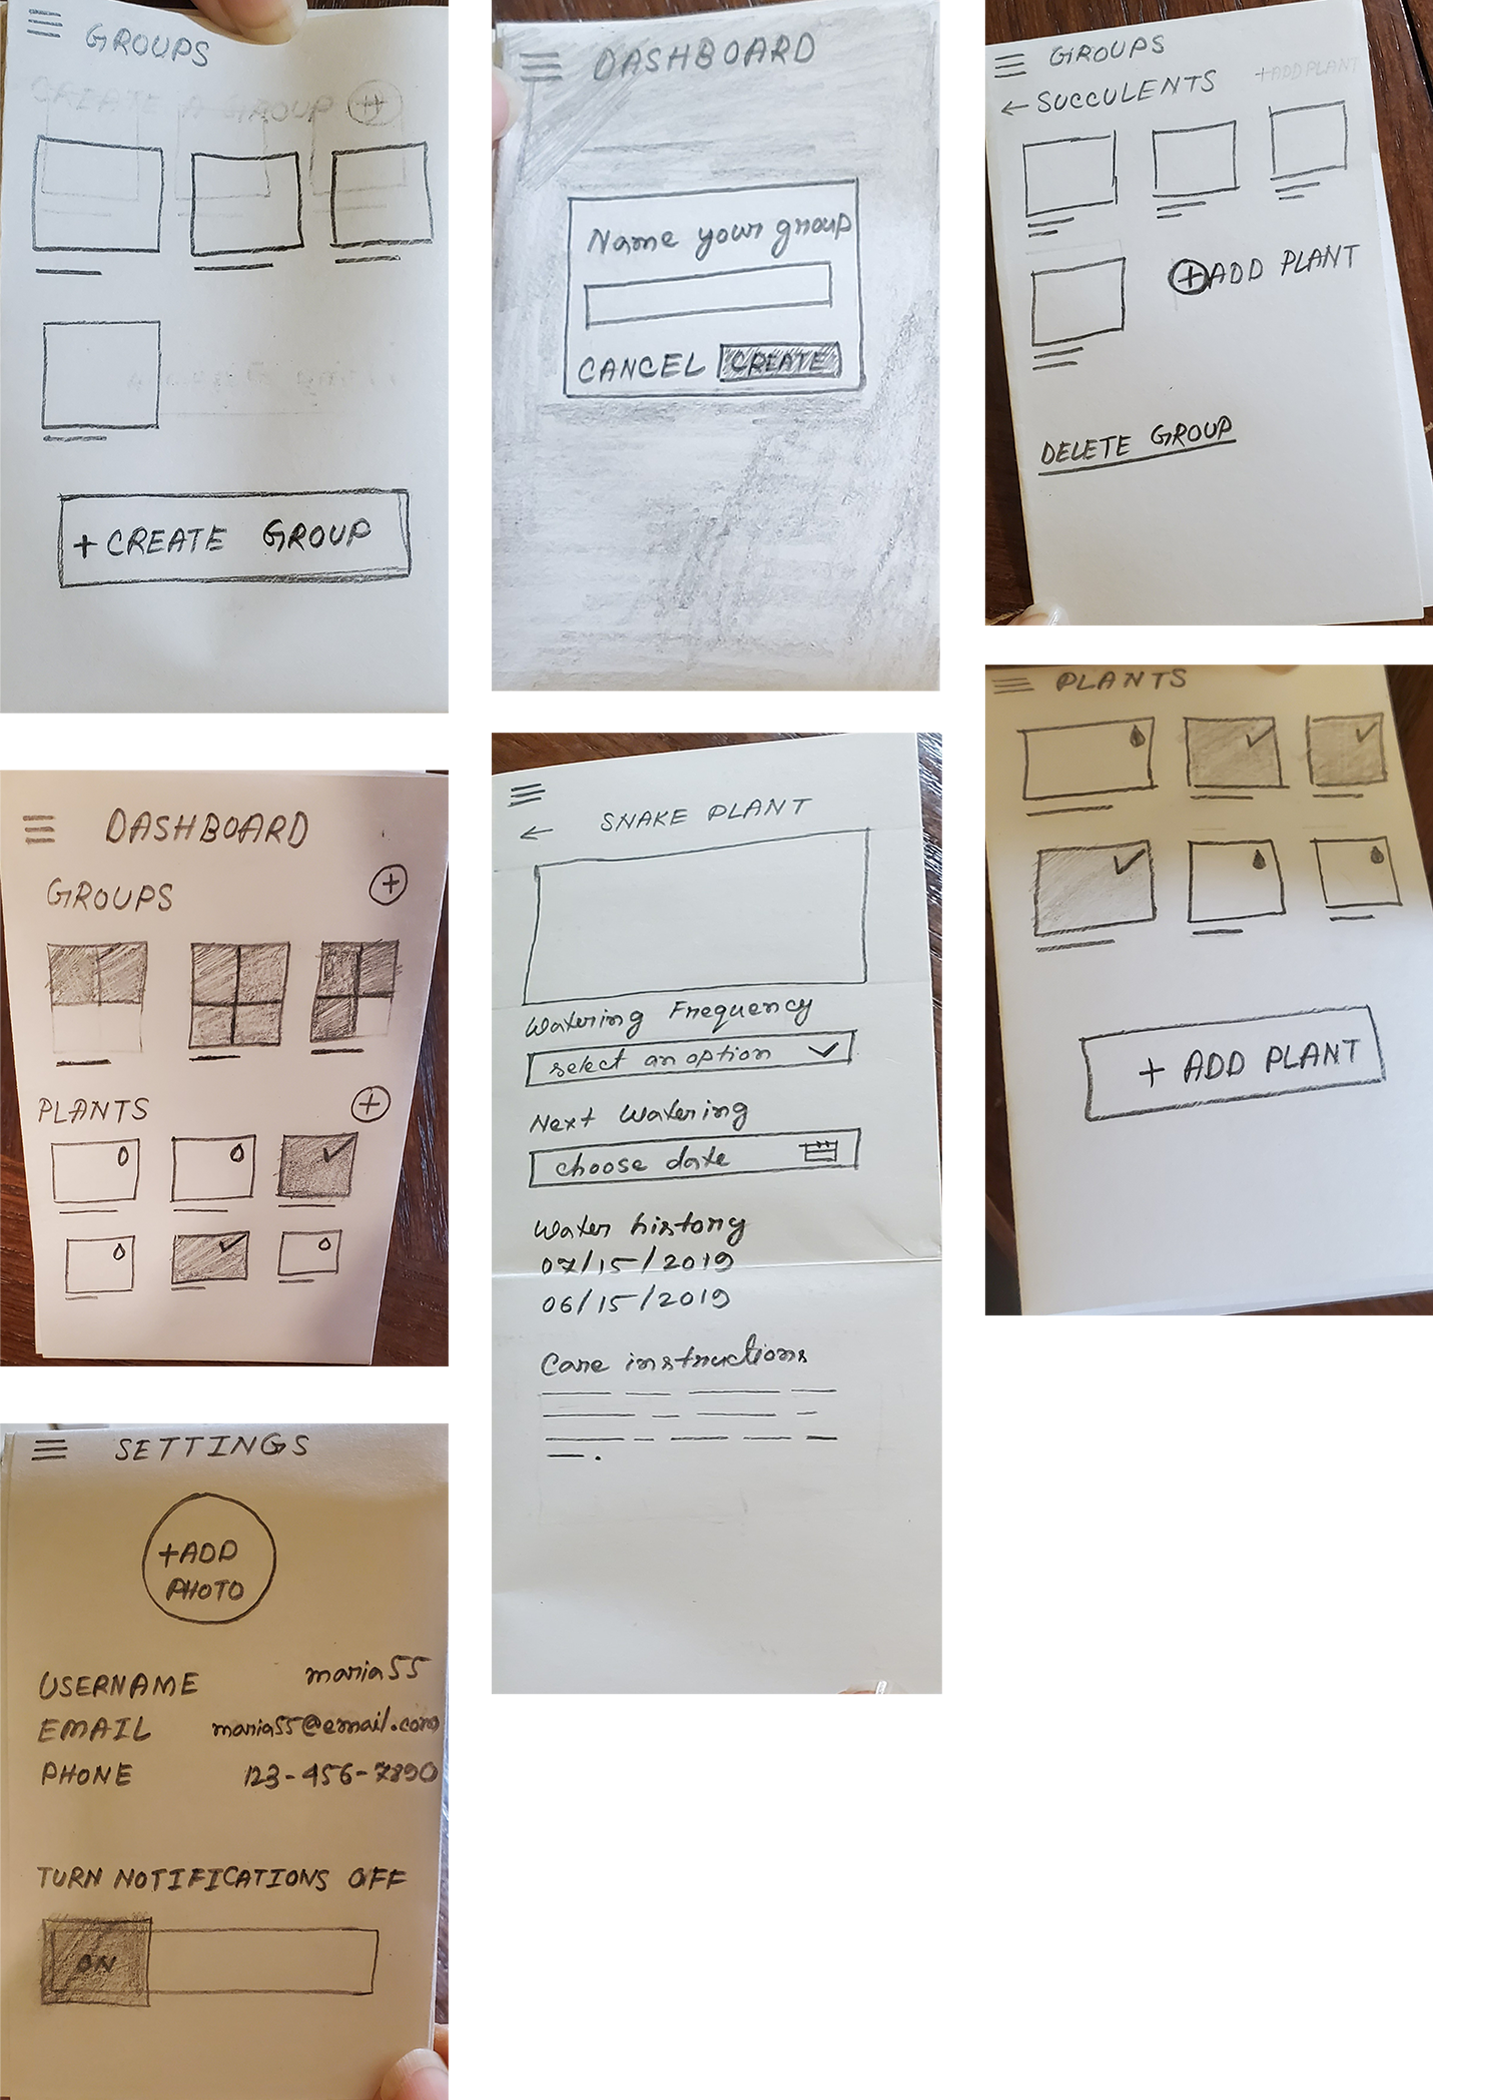 GROUPS
CREATE A GROUP +
+ CREATE GROUP
DASHBOARD
Name your group
CANCEL CREATE
GROUPS
← SUCCULENTS +ADD PLANT
+ ADD PLANT
DELETE GROUP
DASHBOARD
GROUPS +
PLANTS +
← SNAKE PLANT
Watering Frequency
select an option
Next Watering
choose date
Water history
07/15/2019
06/15/2019
Care instructions
PLANTS
+ ADD PLANT
SETTINGS
+ADD
PHOTO
USERNAME maria55
EMAIL maria55@email.com
PHONE 123-456-7890
TURN NOTIFICATIONS OFF
ON